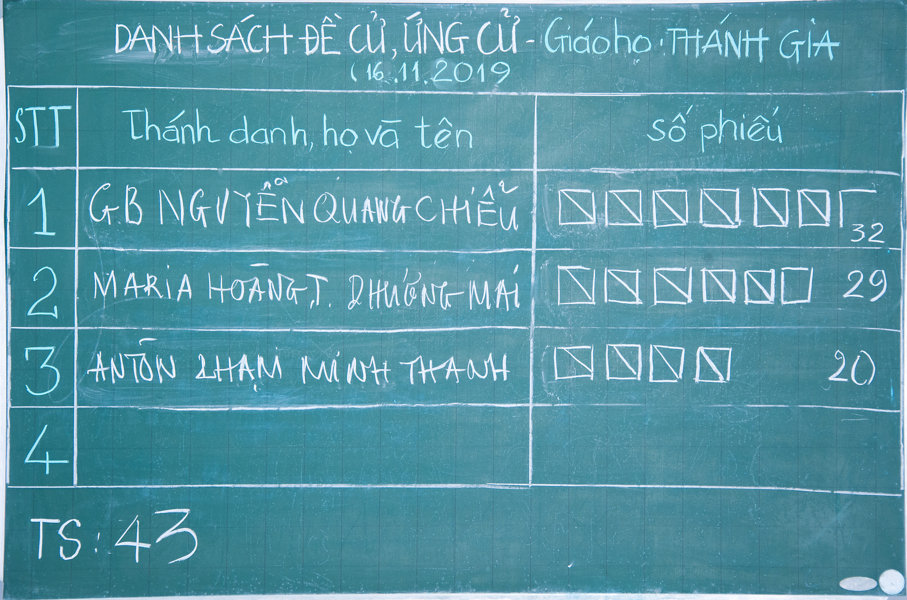 DANH SÁCH ĐỀ CỬ, ỨNG CỬ - Giáo họ THÁNH GIA
(16.11.2019
STT Thánh danh, họ và tên số phiếu
1 GB NGUYỄN QUANG CHIỂU 32
2 MARIA HOÀNG T. PHƯƠNG MAI 29
3 ANTÔN PHẠM MINH THANH 20
4
TS: 43